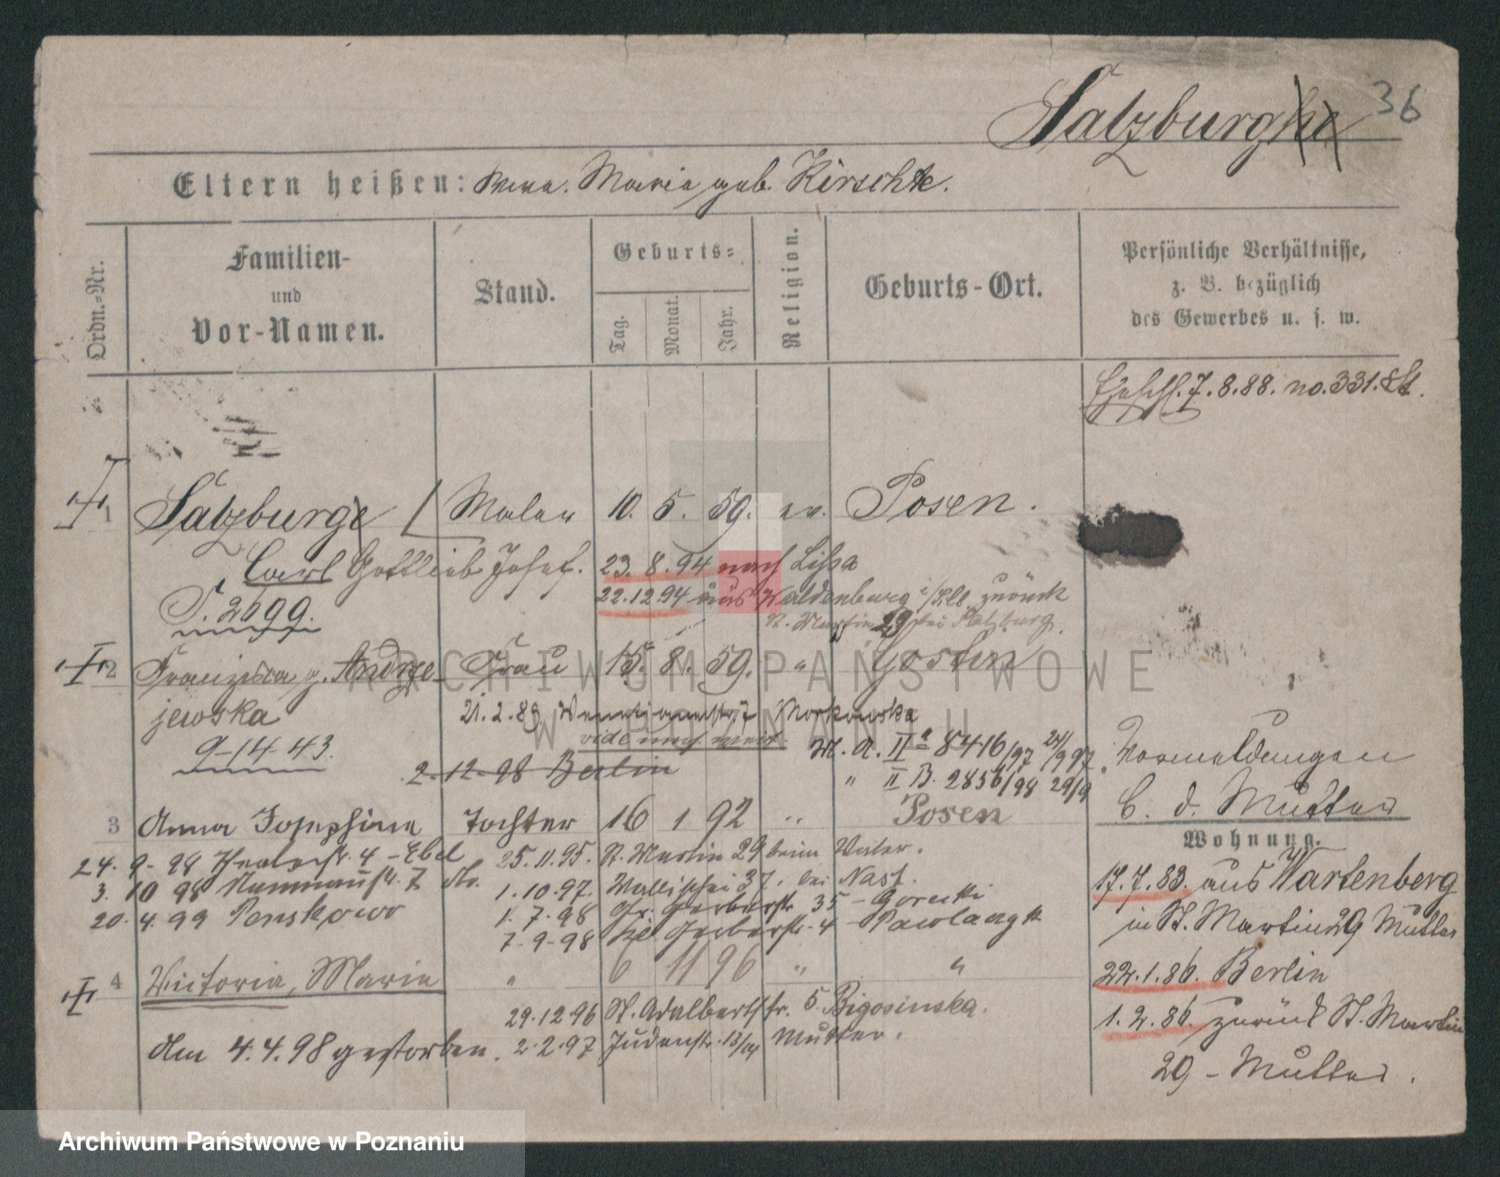 36
Salzburg
Eltern heißen: Maria geb. Kirschke.
Ordn.-Nr.
Familien-
und
Vor-Namen.
Stand.
Geburts-
Tag.
Monat.
Jahr.
Religion.
Geburts-Ort.
Persönliche Verhältnisse,
z. B. bezüglich
des Gewerbes u. s. w.
7.8.88. no. 331.
1 Salzburg Maler 10. 5. 59. ev. Posen.
Carl Gottlieb Josef. 23. 8. 94 nach Lissa
22.12.94 aus Waldenburg i/Schl. zurück
S. 2699. St. Martin 29 bei Salzburg.
2 Franziska g. Andrze- Frau 15. 8. 59. " Gostin
jewska 21.2.89
9-14 43.
M. A. II a 8416/97 24/9 97. Vormeldungen
2-12-98 Berlin
" II B. 2856/98 29/9
b. d. Mutter
3 Anna Josephine Tochter 16 1 92 " Posen
Wohnung.
24. 9- 98 4 - Ebel
25.11.95. St. Martin 29 beim Vater.
3. 10 98 Naumannstr. 7
1.10.97. Wallischei 37. bei Nast.
17.7.83. aus Wartenberg
20. 4. 99
1. 7. 98 Gr. Gerberstr. 35 - Gorecki
7-9-98 Kl. Gerberstr. 4 -
in St. Martin 29 Mutter
4 Victoria, Marie " 6 11 96 " "
22.1.86. Berlin
29.12.96 St. Adalbertstr. 5 Bigosinska.
1.2.86 zurück St. Martin
am 4.4.98 gestorben. 2.2.97 Judenstr. 13/14 Mutter.
29 - Mutter.
ARCHIWUM PAŃSTWOWE
W POZNANIU
Archiwum Państwowe w Poznaniu